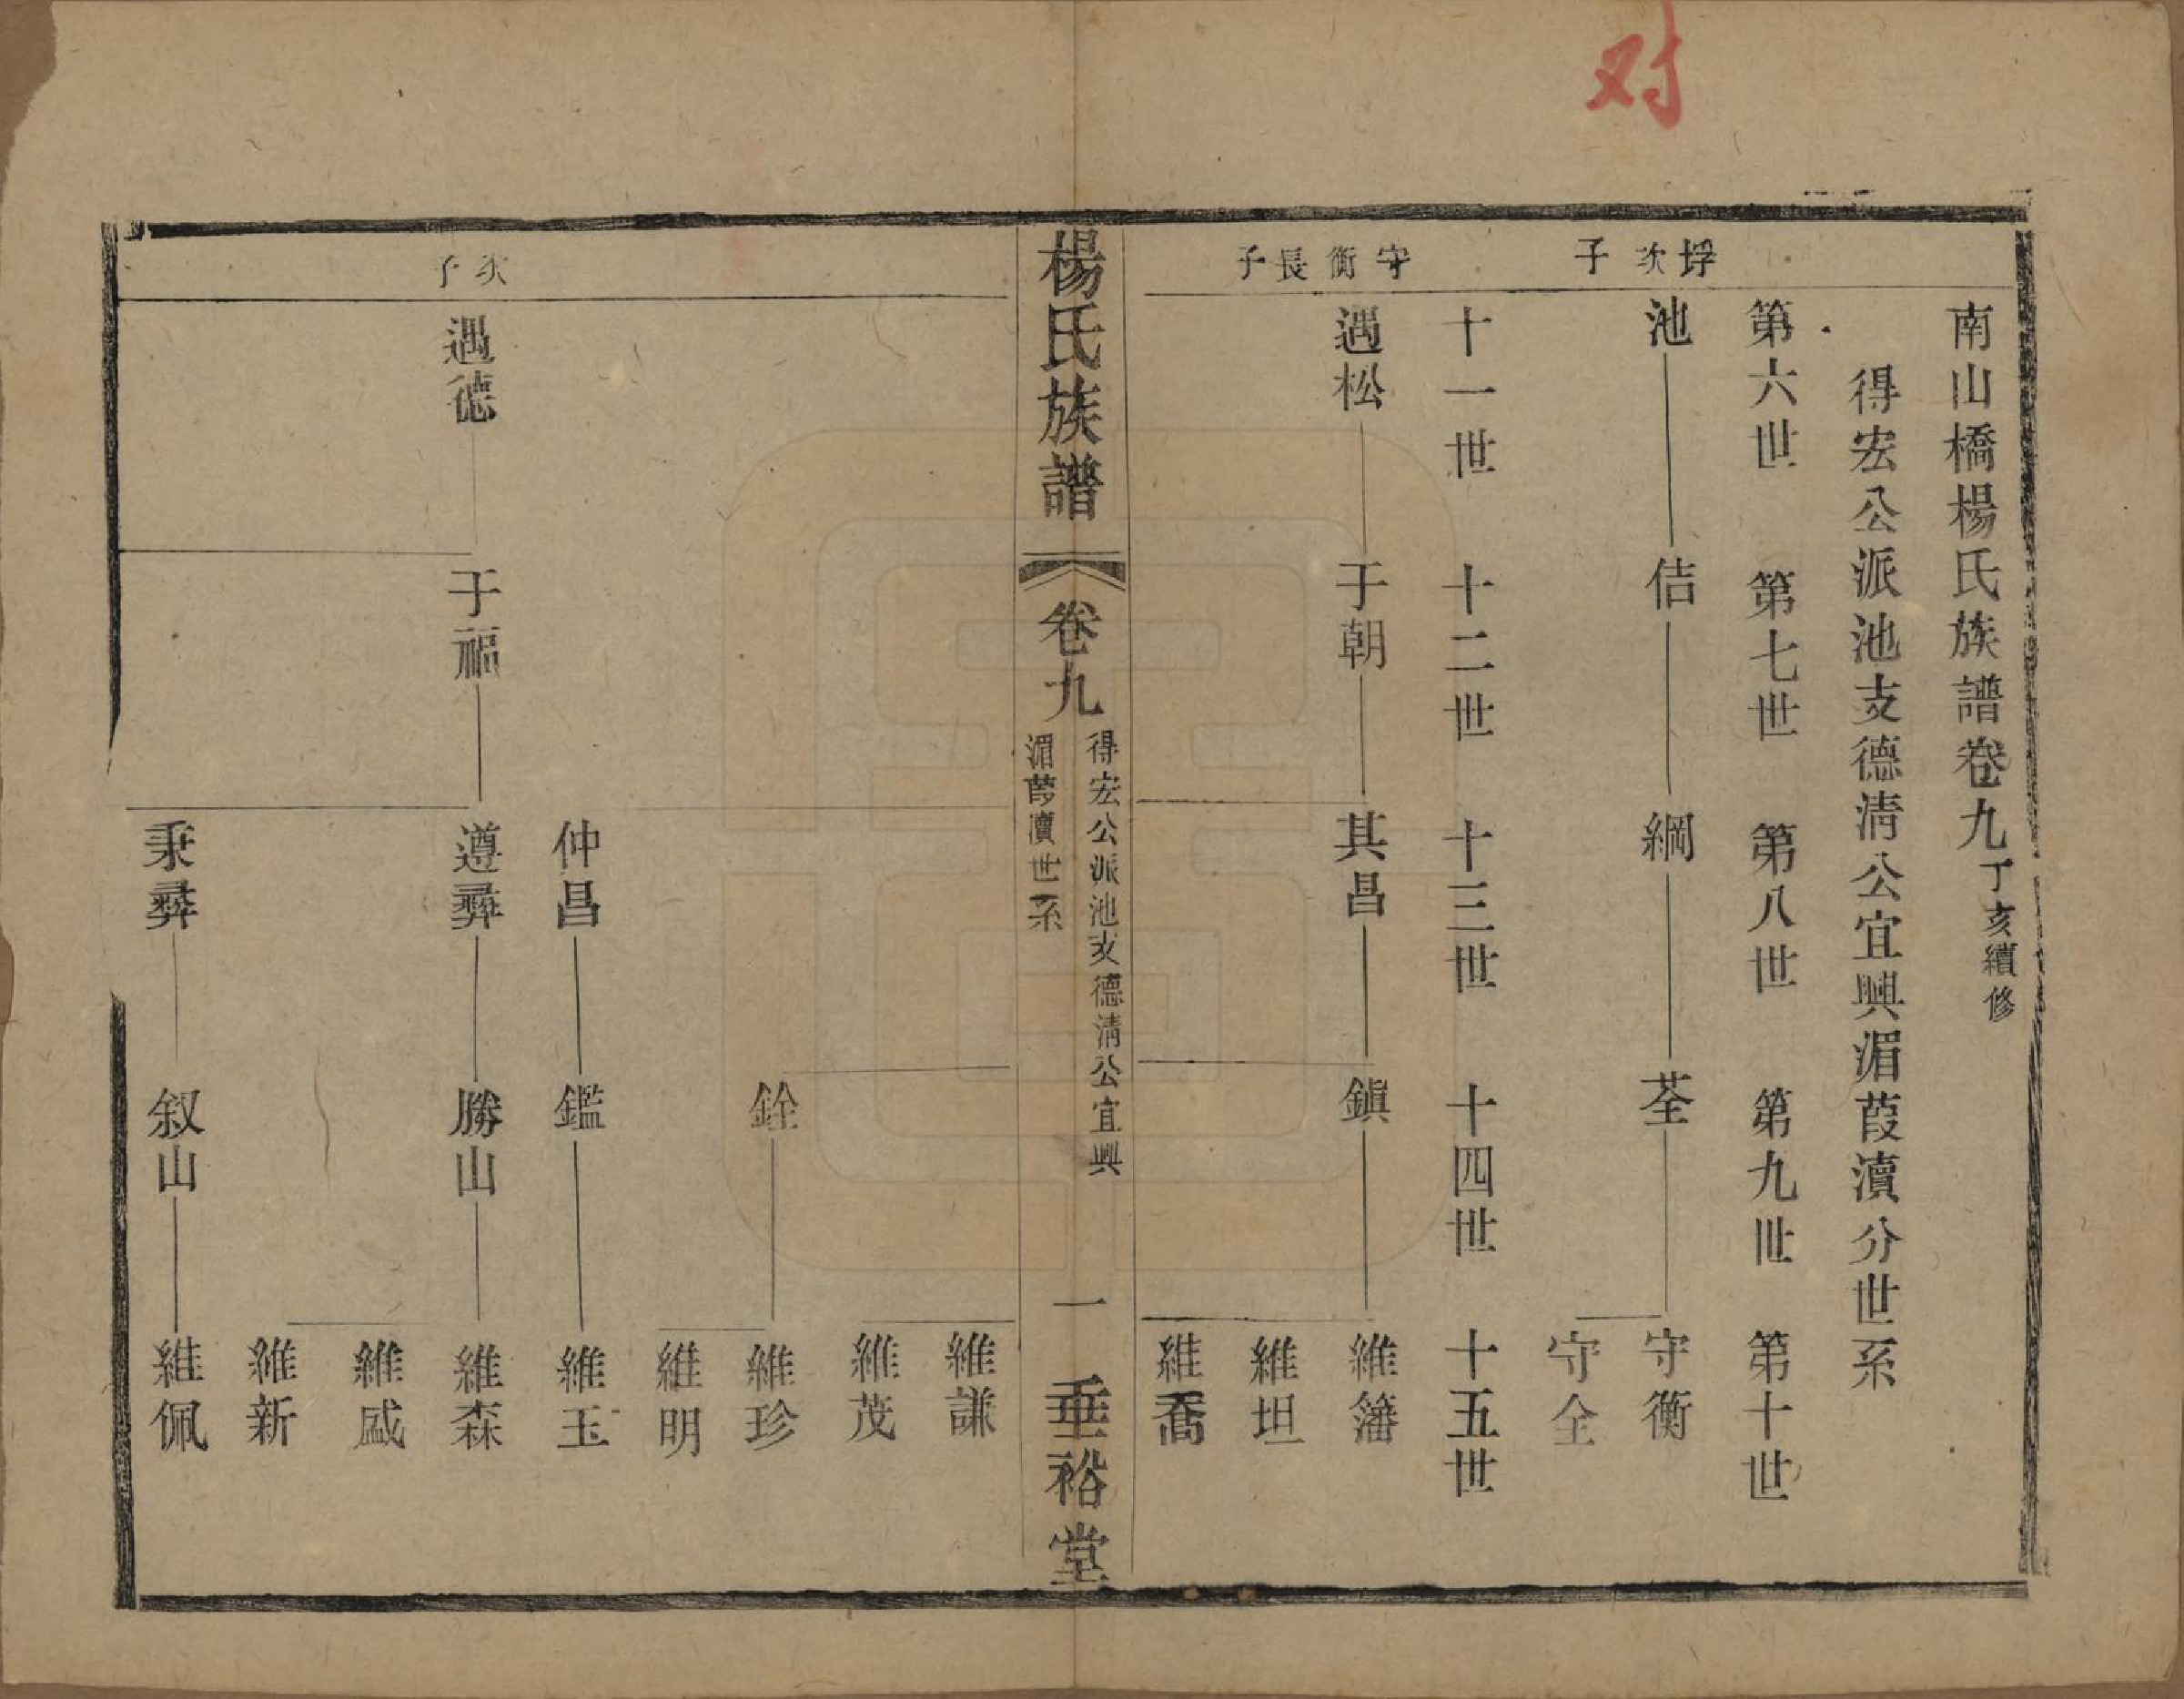 对
南山橋楊氏族譜卷九丁亥續修
得宏公派池支德清公宜興湄葭瀆分世系
第六世 第七世 第八世 第九世 第十世
埒次子
池 佶 綱 荃 守衡
守全
十一世 十二世 十三世 十四世 十五世
守衡長子
遇松 于朝 其昌 鎭 維藩
維坦
維喬
楊氏族譜 卷九 得宏公派池支德清公宜興
湄葭瀆世系
一 垂裕堂
維謙
維茂
銓 維珍
維明
仲昌 鑑 維玉
次子
遇德 于福 遵彝 勝山 維森
維盛
維新
秉彝 叙山 維佩